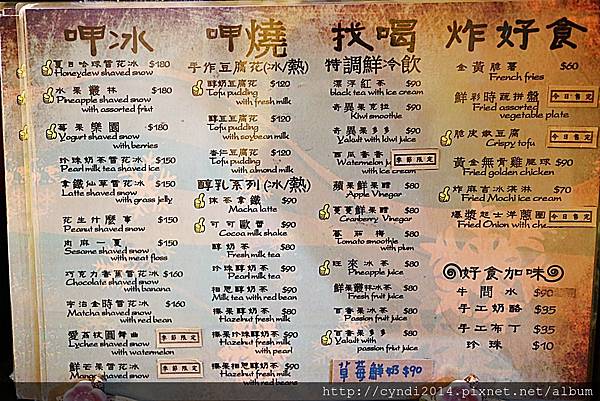 呷冰
夏日哈球雪花冰 $180
Honeydew shaved snow
水果叢林 $180
Pineapple shaved snow
with assorted fruit
莓果樂園 $180
Yogurt shaved snow
with berries
珍珠奶茶雪花冰 $150
Pearl milk tea shaved ice
拿鐵仙草雪花冰 $150
Latte shaved snow
with grass jelly
花生什麼事 $150
Peanut shaved snow
肉麻一夏 $150
Sesame shaved snow
with meat floss
巧克力香蕉雪花冰 $160
Chocolate shaved snow
with banana
宇治金時雪花冰 $160
Matcha shaved snow
with red bean
愛荔枝圓舞曲 季節限定
Lychee shaved snow
with watermelon
鮮芒果雪花冰 季節限定
Mango shaved snow
呷燒
手作豆腐花(冰/熱)
醇奶豆腐花 $120
Tofu pudding
with fresh milk
醇豆豆腐花 $120
Tofu pudding
with soybean milk
杏仁豆腐花 $120
Tofu pudding
with almond milk
醇乳系列(冰/熱)
抹茶拿鐵 $90
Macha latte
可可歐蕾 $90
Cocoa milk shake
醇奶茶 $80
Fresh milk tea
珍珠醇奶茶 $90
Pearl milk tea
相思醇奶茶 $90
Milk tea with red bean
榛果醇奶茶 $80
Hazelnut fresh milk
榛果珍珠醇奶茶 $90
Hazelnut fresh milk
with pearl
榛果相思醇奶茶 $90
Hazelnut fresh milk
with red beans
找喝
特調鮮冷飲
漂浮紅茶 $80
black tea with ice cream
奇異果克拉 $80
Kiwi smoothie
奇異果多多 $80
Yakult with kiwi juice
西瓜香香 季節限定
Watermelon juice
with ice cream
蘋果鮮果醋 $80
Apple Vinegar
蔓蔓鮮果醋 $80
Cranberry Vinegar
蕃茄梅 $80
Tomato smoothie
with plum
旺來冰茶 $80
Pineapple juice
鮮果叢林冰茶 $80
Fresh fruit juice
百香果冰茶 $80
Passion fruit juice
百香果多多 $80
Yakult with
passion fruit juice
草莓鮮奶 $90
炸好食
金黃脆薯 $60
French fries
鮮彩時蔬拼盤 今日售完
Fried assorted
vegetable plate
脆皮嫩豆腐 今日售完
Crispy tofu
黃金無骨雞腿球 $90
Fried golden chicken
炸麻吉冰淇淋 $70
Fried Mochi ice cream
爆漿起士洋蔥圈 今日售完
Fried Onion with che
好食加味
牛問水 $90
手工奶酪 $35
手工布丁 $35
珍珠 $10
http://cyndi2014.pixnet.net/album